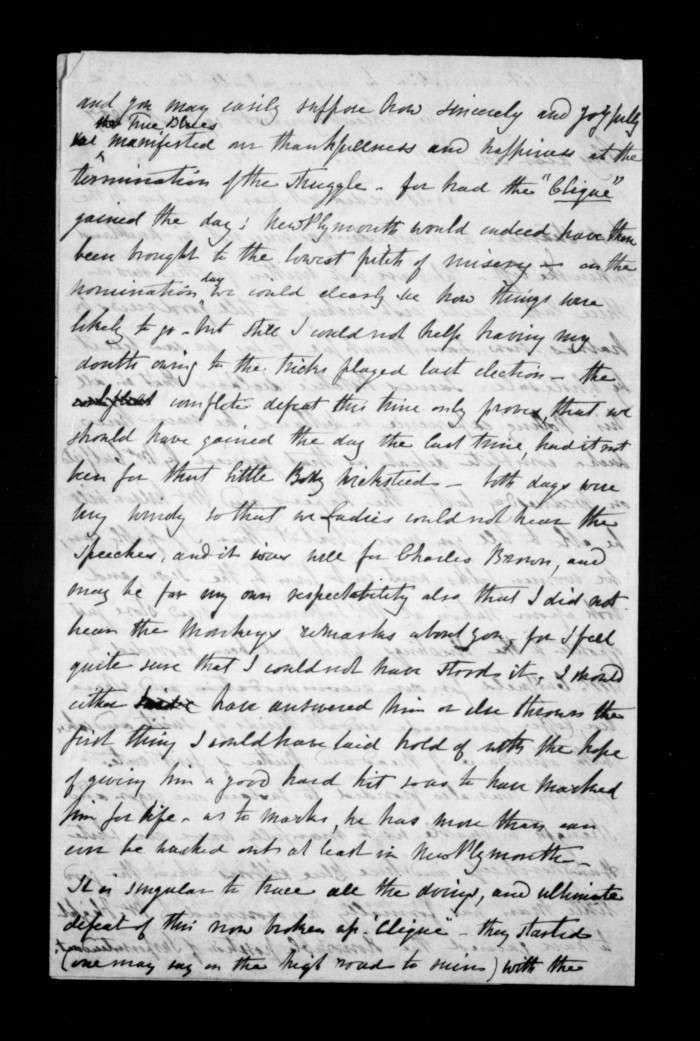 and you may easily suppose how sincerely and joyfully
the True Blues
manifested our thankfullness and happiness at the
termination of the struggle - for had the "Clique"
gained the day; New Plymouth would indeed have then
been brought to the lowest pitch of misery - on the
day
nomination we could clearly see how things were
likely to go - but still I could not help having my
doubts owing to the tricks played last election - the
complete defeat this time only proves, that we
should have gained the day the last time, had it not
been for that little Body Wicksteed - both days were
very windy so that we Ladies could not hear the
Speeches, and it was well for Charles Brown, and
may be for my own respectability also that I did not
hear the Monkeys remarks about you, for I feel
quite sure that I could not have stood it. I should
either have answered him or else thrown the
first thing I could have laid hold of with the hope
of giving him a good hard hit so as to have marked
him for life - as to marks, he has more than can
ever be washed out at least in New Plymouth -
It is singular to trace all the doings, and ultimate
defeat of this now broken up "Clique" - they started
(one may say on the high road to ruin) with the